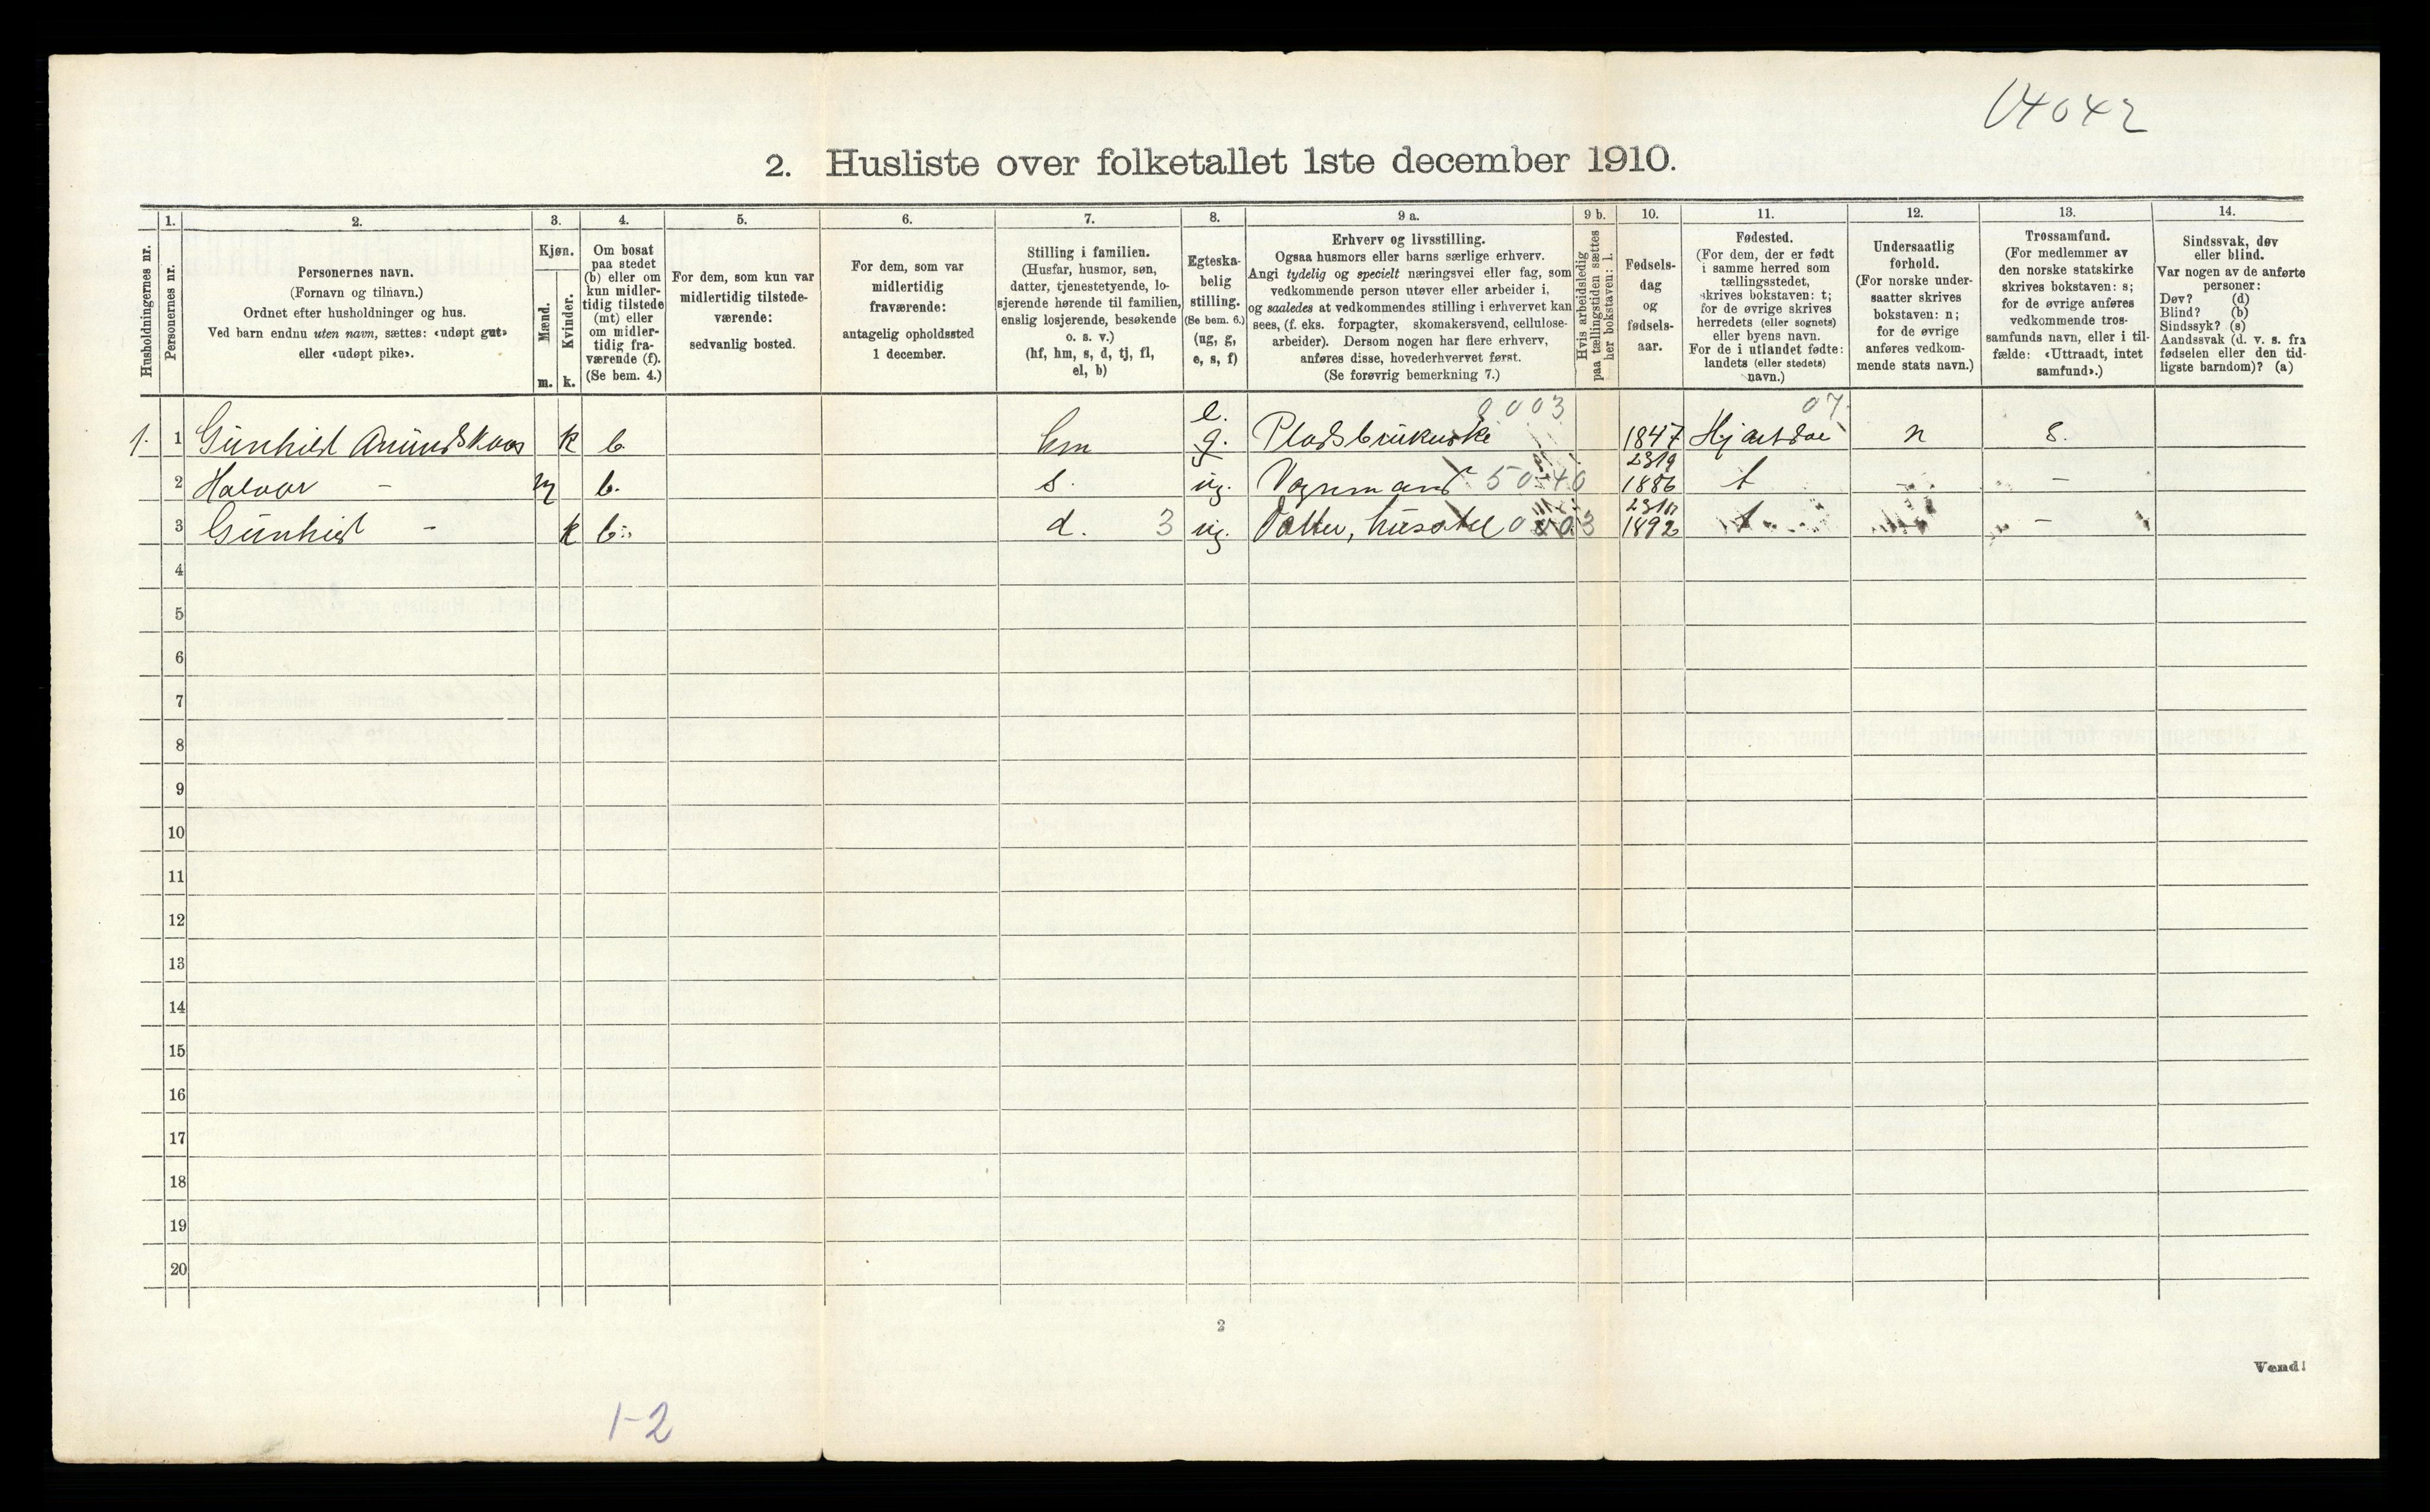 2. Husliste over folketallet 1ste december 1910.
Husholdningernes nr.
1.
Personernes nr.
2.
Personernes navn.
(Fornavn og tilnavn.)
Ordnet efter husholdninger og hus.
Ved barn endnu uten navn, sættes: «udøpt gut»
eller «udøpt pike».
3.
Kjøn.
Mænd.
Kvinder.
m. k.
4.
Om bosat
paa stedet
(b) eller om
kun midler-
tidig tilstede
(mt) eller
om midler-
tidig fra-
værende (f).
(Se bem. 4.)
5.
For dem, som kun var
midlertidig tilstede-
værende:
sedvanlig bosted.
6.
For dem, som var
midlertidig
fraværende:
antagelig opholdssted
1 december.
7.
Stilling i familien.
(Husfar, husmor, søn,
datter, tjenestetyende, lo-
sjerende hørende til familien,
enslig losjerende, besøkende
o. s. v.)
(hf, hm, s, d, tj, fl,
el, b)
8.
Egteska-
belig
stilling.
(Se bem. 6.)
(ug, g,
e, s, f)
9 a.
Erhverv og livsstilling.
Ogsaa husmors eller barns særlige erhverv.
Angi tydelig og specielt næringsvei eller fag, som
vedkommende person utøver eller arbeider i,
og saaledes at vedkommendes stilling i erhvervet kan
sees, (f. eks. forpagter, skomakersvend, cellulose-
arbeider). Dersom nogen har flere erhverv,
anføres disse, hovederhvervet først.
(Se forøvrig bemerkning 7.)
9 b.
Hvis arbeidsledig
paa tællingstiden sættes
her bokstaven: l.
10.
Fødsels-
dag
og
fødsels-
aar.
11.
Fødested.
(For dem, der er født
i samme herred som
tællingsstedet,
skrives bokstaven: t;
for de øvrige skrives
herredets (eller sognets)
eller byens navn.
For de i utlandet fødte:
landets (eller stedets)
navn.)
12.
Undersaatlig
forhold.
(For norske under-
saatter skrives
bokstaven: n;
for de øvrige
anføres vedkom-
mende stats navn.)
13.
Trossamfund.
(For medlemmer av
den norske statskirke
skrives bokstaven: s;
for de øvrige anføres
vedkommende tros-
samfunds navn, eller i til-
fælde: «Uttraadt, intet
samfund».)
14.
Sindssvak, døv
eller blind.
Var nogen av de anførte
personer:
Døv? (d)
Blind? (b)
Sindssyk? (s)
Aandssvak (d. v. s. fra
fødselen eller den tid-
ligste barndom)? (a)
e. 0003 07
1. 1 Gunhild Amundskaas k b hm g. Pladsbrukerske 1847 Hjartdal n s.
2 Halvor - m b. s. ug. Vognmand 5040 1886 t -
3 Gunhild - k b: d. 3 ug. Datter, husstel 1892 t -
4
5
6
7
8
9
10
11
12
13
14
15
16
17
18
19
20
2
Vend!
1-2